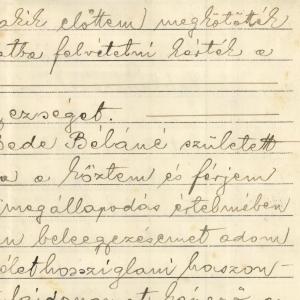 akik előttem) megkötötték
felvételni kérték a
ezséget.
Bede Béláné született
a a köztem és férjem
megállapodás értelmében
n beleegyezésemet adom
élethossziglani haszon-